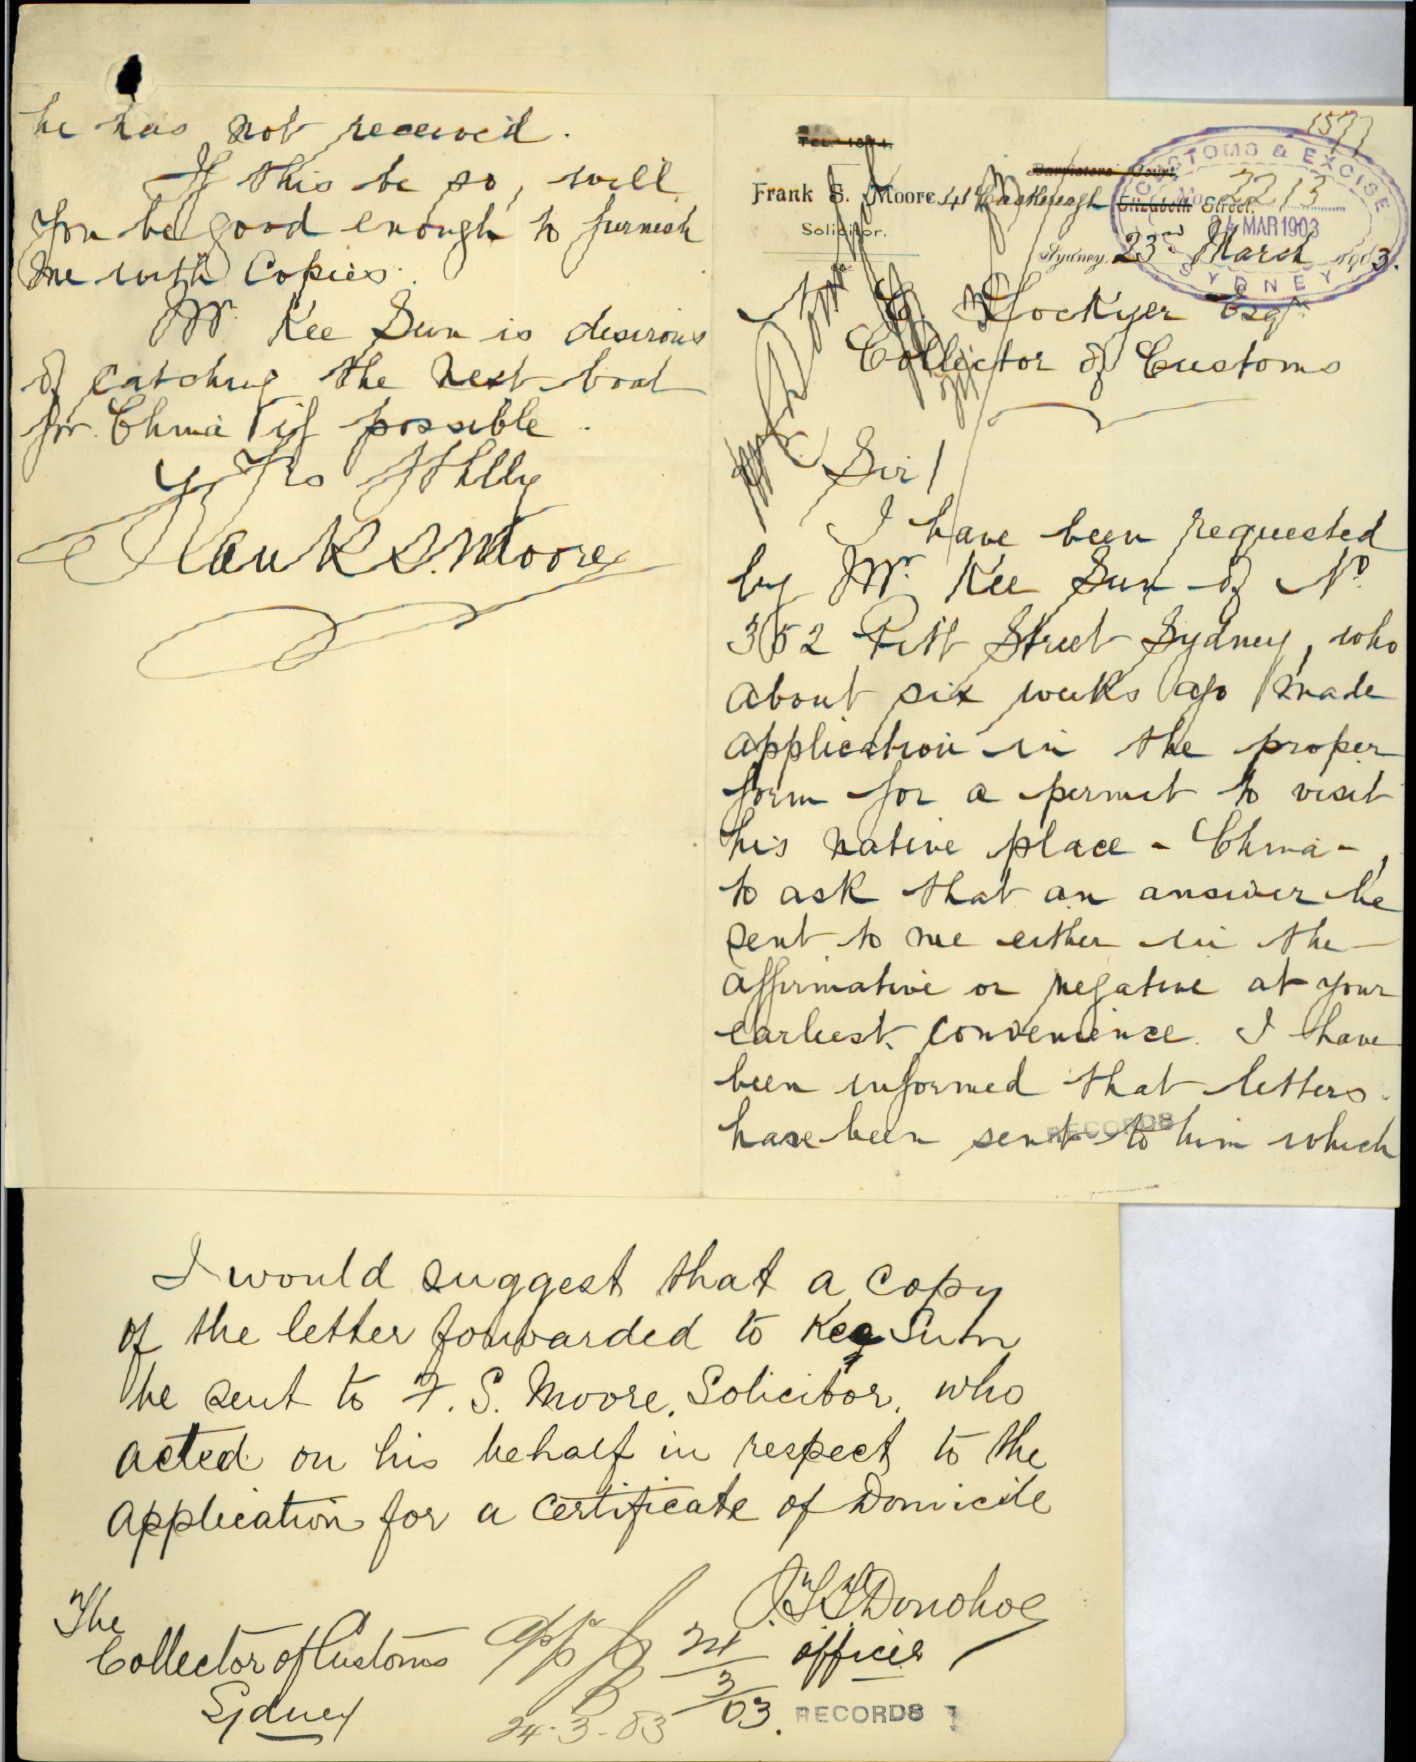 1577
Tel. 1874.
Barristers Court
Frank S. Moore 41 Castlereagh Elizabeth Street.
Solicitor.
CUSTOMS & EXCISE
No. 2213
24 MAR 1903
SYDNEY
Sydney, 23rd March 1903.
N. Lockyer Esqr
Collector of Customs
Sir/
I have been requested
by Mr. Kee Sun of No
352 Pitt Street Sydney, who
about six weeks ago made
application in the proper
form for a permit to visit
his native place - China -,
to ask that an answer be
sent to me either in the
affirmative or negative at your
earliest convenience. I have
been informed that letters
have been sent to him which
RECORDS
he has not received.
If this be so, will
you be good enough to furnish
me with Copies.
Mr. Kee Sun is desirous
of catching the next boat
for China if possible.
Yrs ffhlly
Frank S. Moore
I would suggest that a copy
of the letter forwarded to Kee Sun
be sent to F. S. Moore, Solicitor, who
acted on his behalf in respect to the
application for a certificate of Domicile
J.T.T. Donohoe
officer
24/3/03.
The
Collector of Customs
Sydney
App
24-3-03
RECORDS